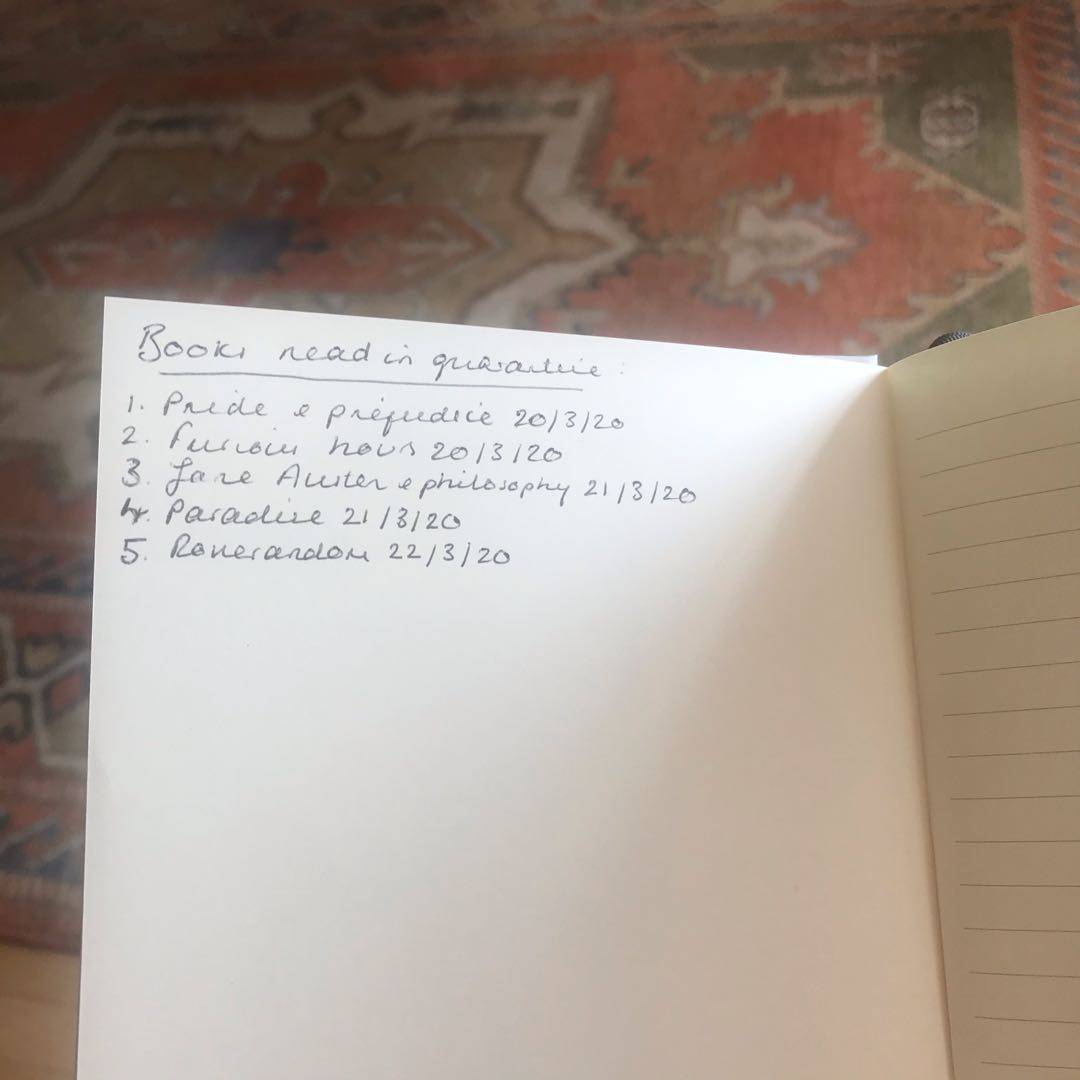 Books read in quarantine:
1. Pride & prejudice 20/3/20
2. Furious hours 20/3/20
3. Jane Austen & philosophy 21/3/20
4. Paradise 21/3/20
5. Roverandom 22/3/20